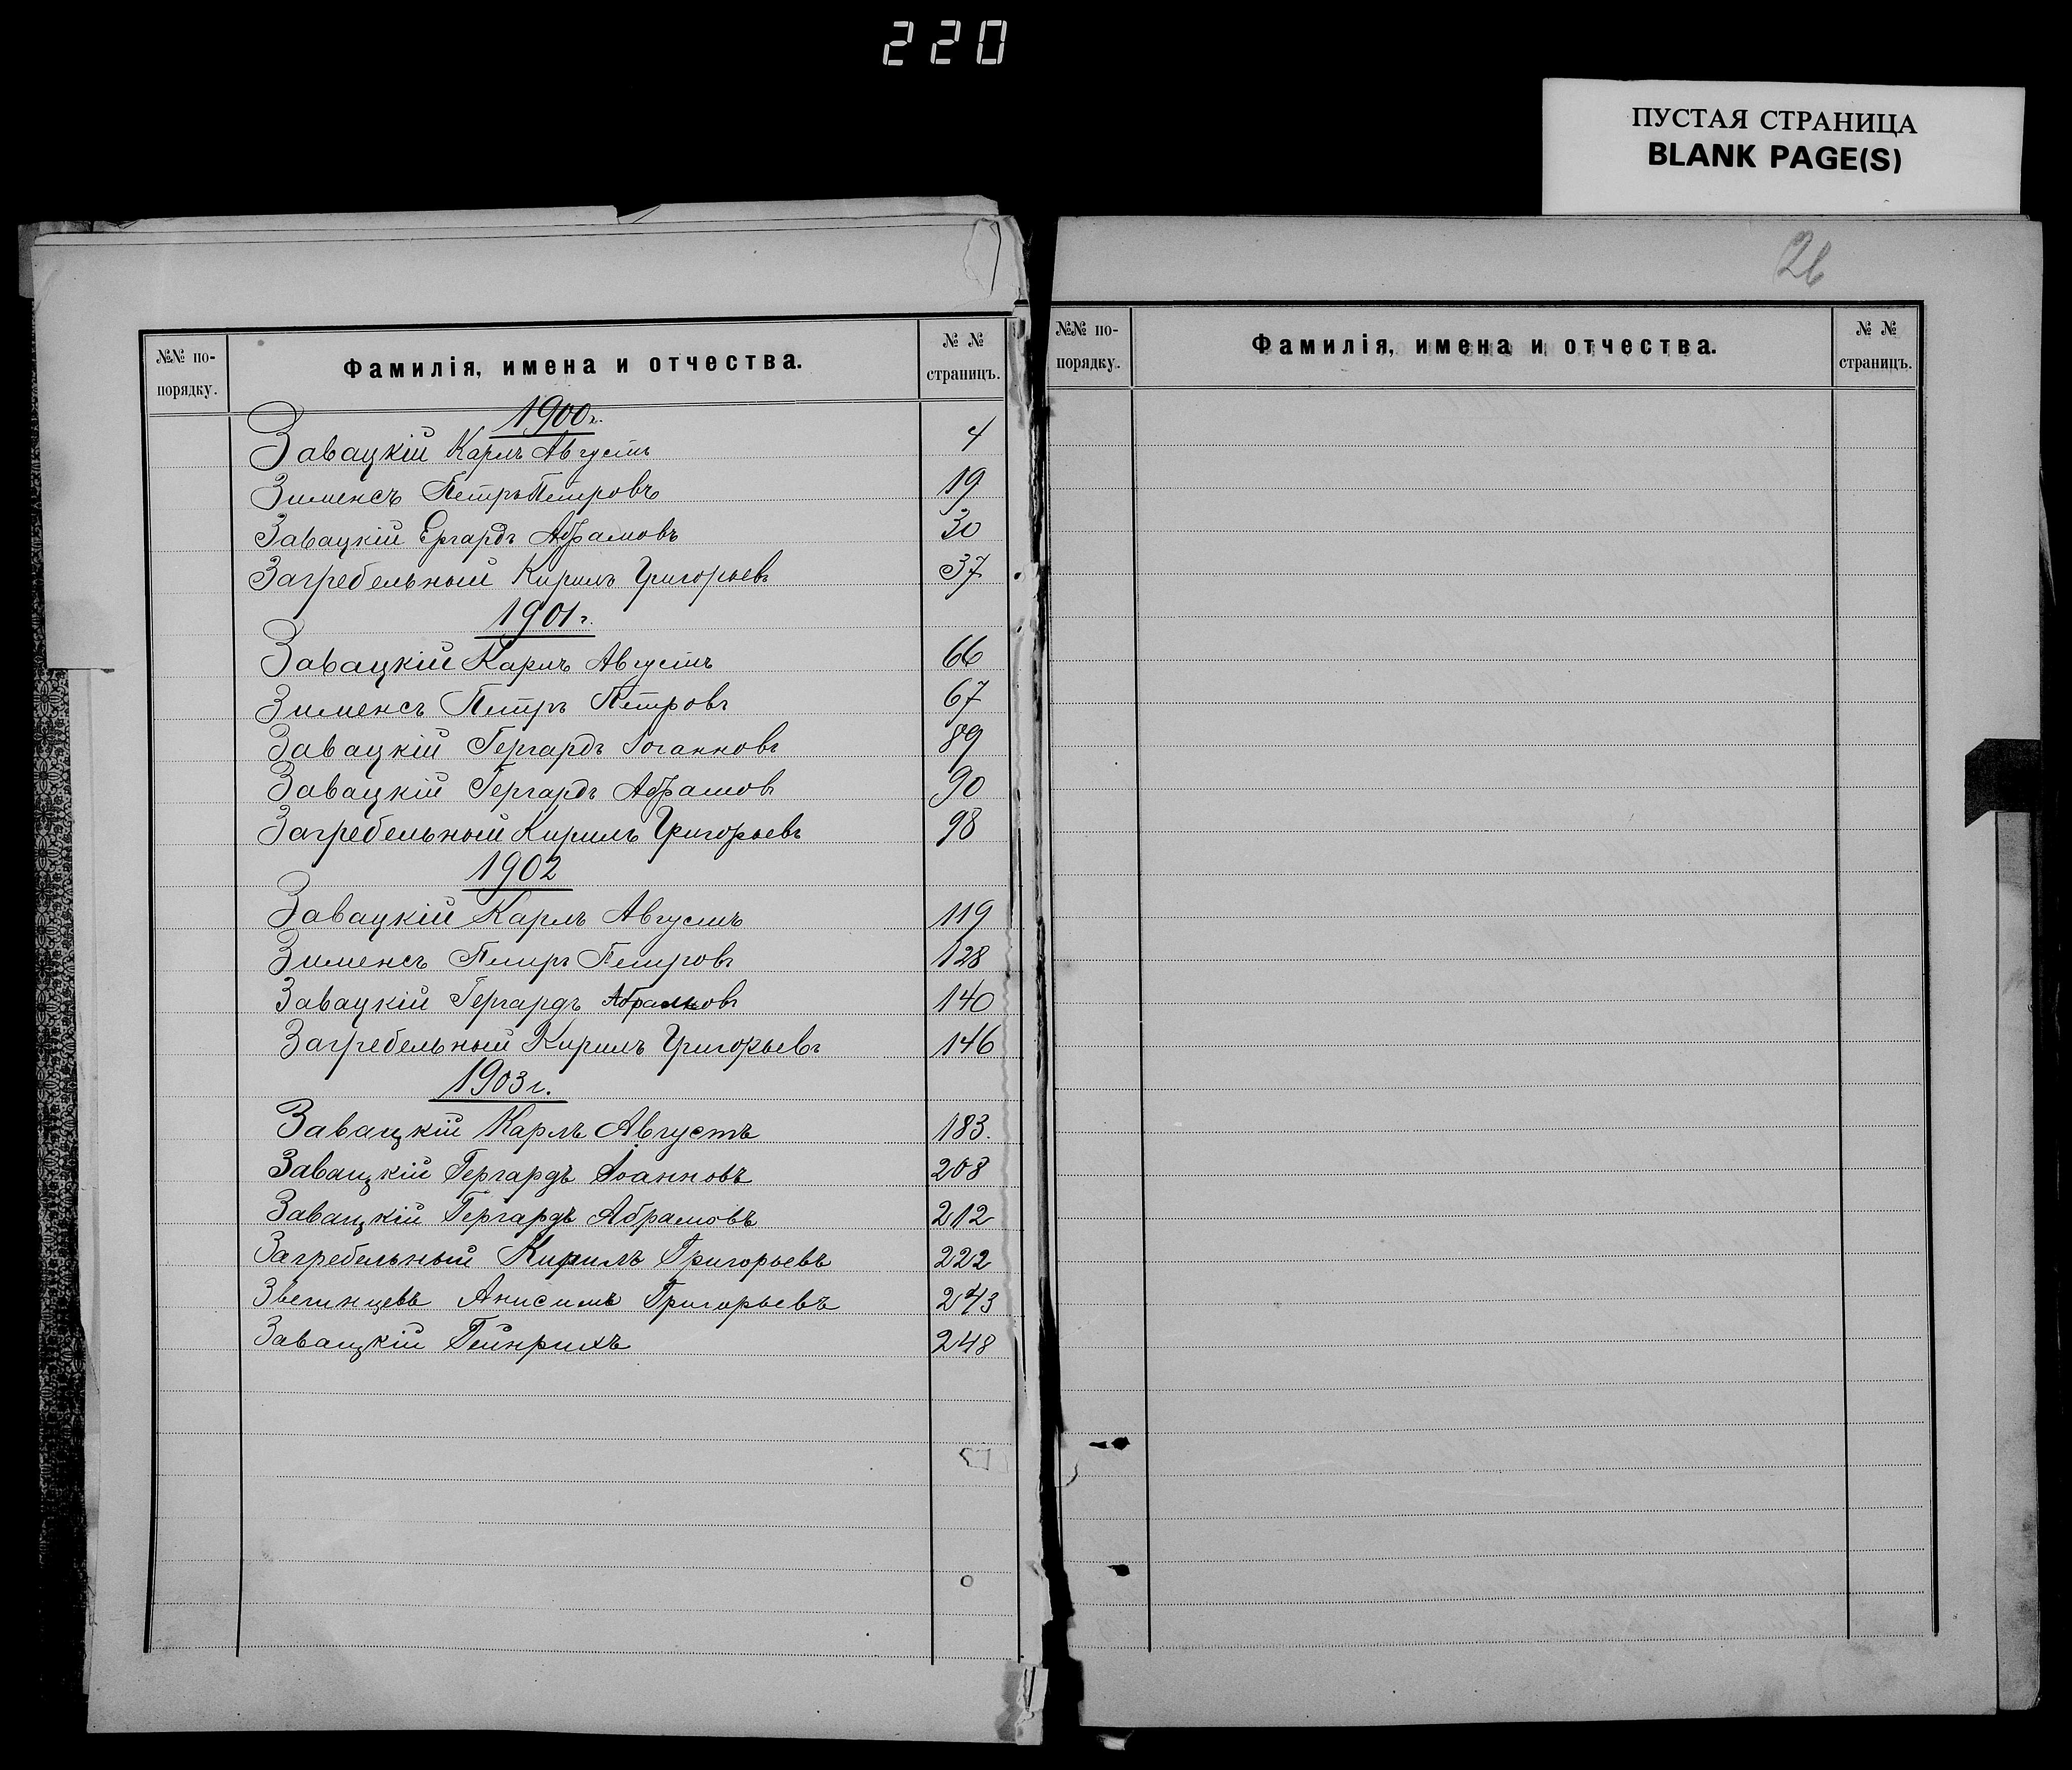 220
ПУСТАЯ СТРАНИЦА
BLANK PAGE(S)
26
№№ по-
порядку.
Фамилія, имена и отчества.
№ №
страницъ.
1900г.
Завацкій Карлъ Августъ 4
Зименсъ Петръ Петровъ 19
Завацкій Ергардъ Абрамовъ 30
Загребельный Кирилъ Григорьевъ 37
1901г.
Завацкій Карлъ Августъ 66
Зименсъ Петръ Петровъ 67
Завацкій Гергардъ Іоганновъ 89
Завацкій Гергардъ Абрамов 90
Загребельный Кирилъ Григорьевъ 98
1902
Завацкій Карлъ Августъ 119
Зименсъ Петръ Петровъ 128
Завацкій Гергардъ Абрамовъ 140
Загребельный Кирилъ Григорьевъ 146
1903г.
Завацкій Карлъ Августъ 183.
Завацкій Гергардъ Іоанновъ 208
Завацкій Гергардъ Абрамовъ 212
Загребельный Кирилъ Григорьевъ 222
Звегинцевъ Анисимъ Григорьевъ 243
Завацкій Гейнрихъ 248
№№ по-
порядку.
Фамилія, имена и отчества.
№ №
страницъ.